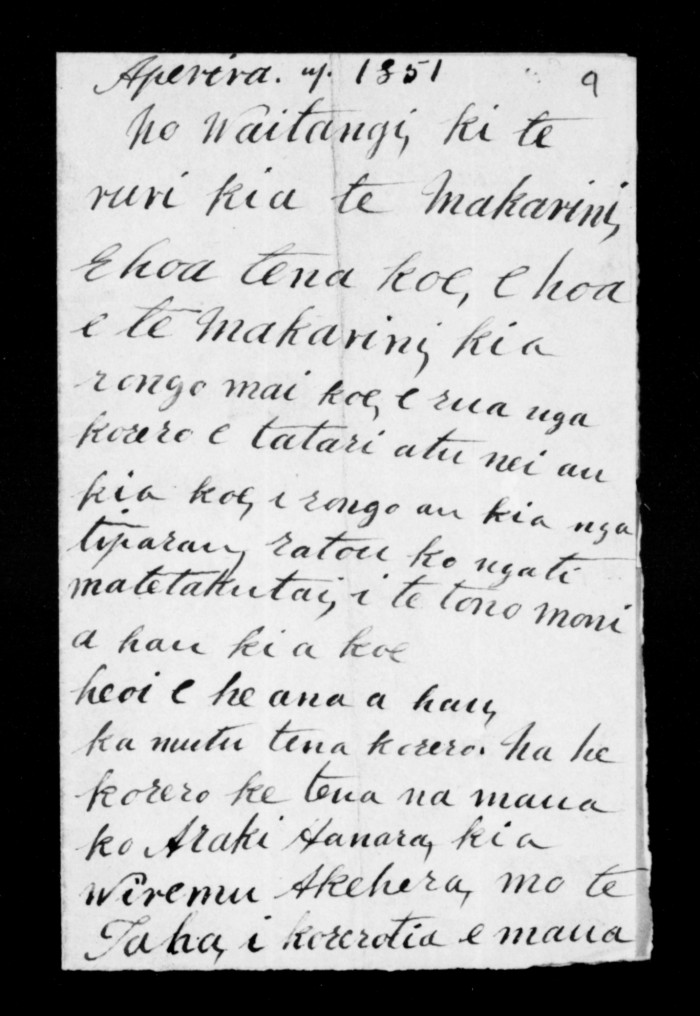 Aperira. 1851 9
No Waitangi, ki te
ruri kia te Makarini,
E hoa tena koe, e hoa
e te Makarini, kia
rongo mai koe, e rua nga
korero e tatari atu nei au
kia koe, i rongo au kia nga
tiparau, ratou ko ngati
matetakutai, i te tono moni
a hau ki a koe
heoi e he ana a hau,
ka mutu tena korero. Na he
korero ke tena na maua
ko Araki Hanara, kia
Wiremu Akehera, mo te
Taha, i korerotia e maua